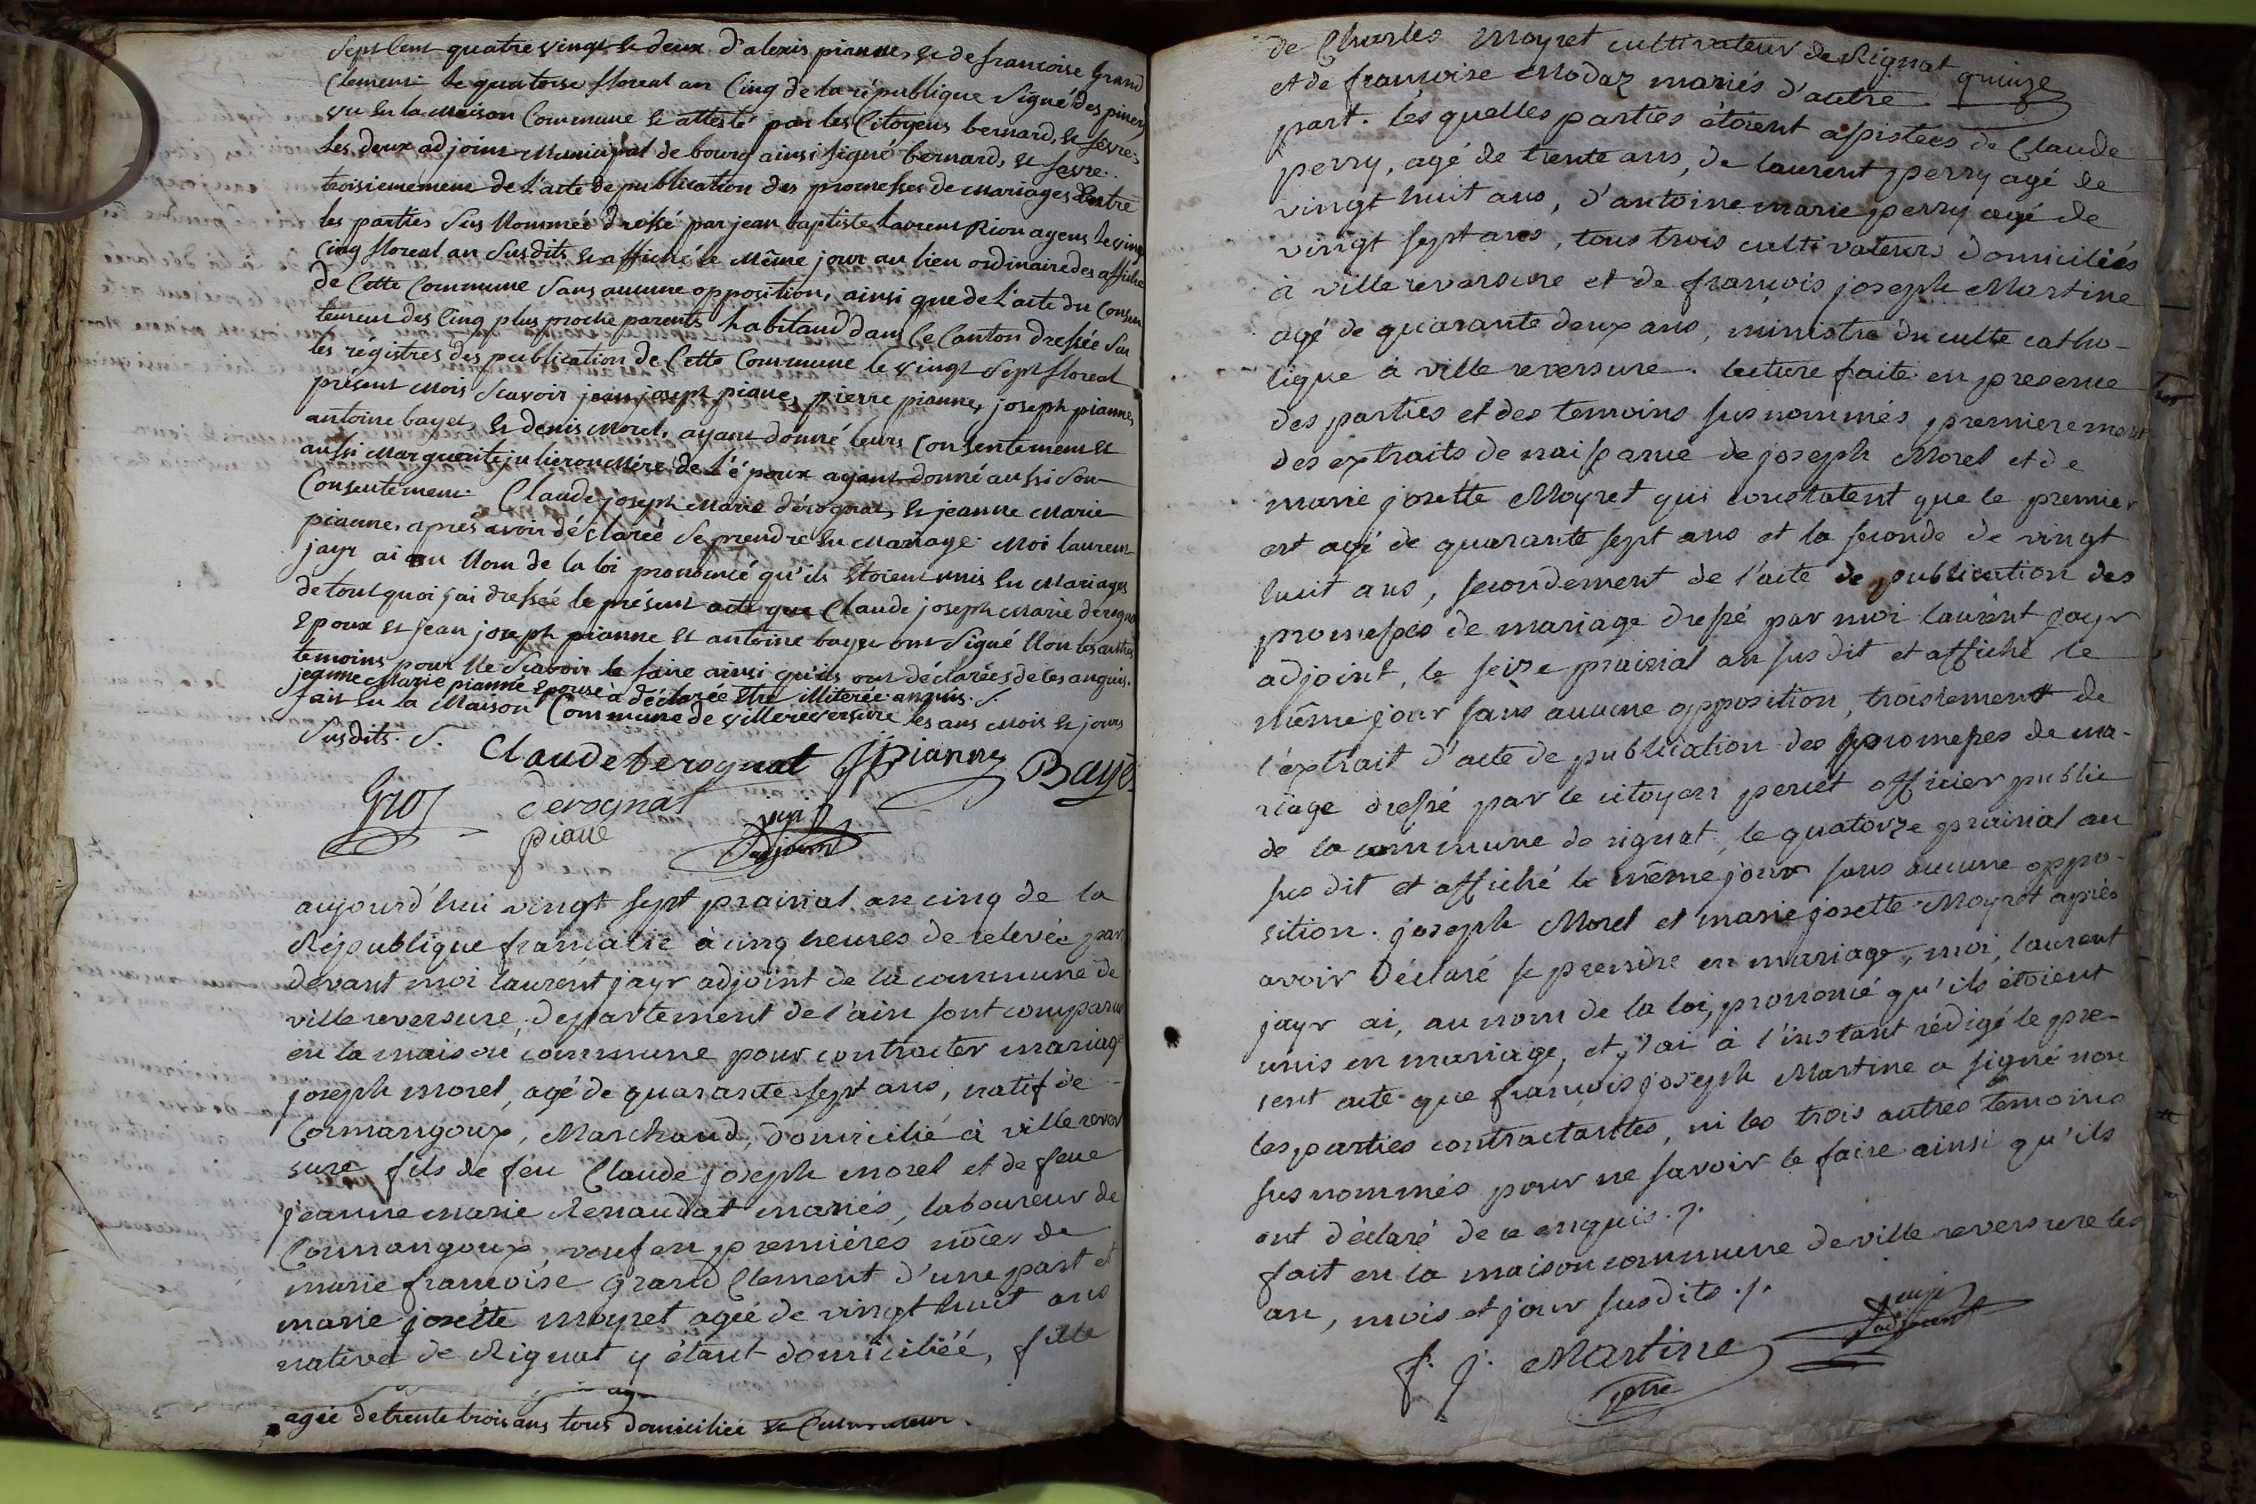 Sept Cent quatre vingt & deux d'alexis pianne, & de francoise Grand
Clement le quatorse floreal an Cinq de la république Signé des piners
vu en la Maison Commune & attesté par les Citoyens bernard, & fevre,
les deux adjoint Municipal de bourg ainsi signé bernard, & fevre.
troisiemement de l'acte de publication des promesses de Mariages Entre
les parties Sus Nommée dressé par jean baptiste laurent Rion agent le vingt
Cinq floreal an Susdits & affiché le Même jour au lieu ordinaire des affiche
de Cette Commune Sans aucune opposition, ainsi que de l'acte du Consen
tement des Cinq plus proche parents habitand dans Ce Canton dressée Sur
les régistres des publication de Cette Commune le vingt Sept floreal
présent Mois Scavoir jean joseph piane, pierre pianne, joseph pianne,
antoine bayet, & denis Morel, ayant donné leurs Consentement &
aussi Marguerite julieron Mére de l'époux ayant donné aussi Son
Consentement. Claude joseph Marie dérognat, & jeanne Marie
pianne, aprés avoir déclarée Se prendre en Mariage Moi laurent
jayr ai au Nom de la loi prononcé qu'ils étoient unis en Mariages
de tout quoi j'ai dressée le présent acte que Claude joseph Marie derognat
Epoux & jean joseph pianne & antoine bayet ont Signé Non les autres
temoins pour Ne Scavoir le faire ainsi qu'ils ont déclarées de Ces anquis.
jeanne Marie pianne Epouse à déclarée Etre illiterée anquis. S.
fait en la Maison Commune de villereversure les ans Mois & jours
Susdits. S.
Claude Derognat JJ pianne Bayet
Gros derognat jayr
piane adjoint
aujourd'hui vingt sept prairial an cinq de la
République francaise à cinq heures de relevée par
devant moi laurent jayr adjoint de la commune de
ville reversure, departement de l'ain sont comparus
en la maison commune pour contracter mariage
joseph morel, agé de quarante sept ans, natif de
Cormangoux, Marchand, domicilié à ville rever
sure fils de feu Claude joseph morel et de feue
jeanne marie Renaudat mariés, laboureur de
Cormangoux, veuf en premieres nôces de
marie francoise Grand Clement d'une part et
marie josette moyret agée de vingt huit ans
native de Rignat y étant domiciliéé, fille
agée de trente trois ans tous domiciliée & Cultivateur.
de Charles Moyret cultivateur de Rignat quinze
et de francoise Modaz mariés d'autre
part. les quelles parties étoient assistées de Claude
perry, agé de trente ans, de laurent perry agé de
vingt huit ans, d'antoine marie perry agé de
vingt sept ans, tous trois cultivateurs domiciliés
à ville reversure et de françois joseph Martine
agé de quarante deux ans, ministre du culte catho-
lique à ville reversure. lecture faite en presence
des parties et des temoins sus nommés, premierement
des extraits de naissance de joseph Morel et de
marie josette Moyret qui constatent que le premier
est agé de quarante sept ans et la seconde de vingt
huit ans, secondement de l'acte de publication des
promesses de mariage dressé par moi laurent jayr
adjoint, le seize prairial an sus dit et affiché le
même jour sans aucune opposition, troisiement de
l'extrait d'acte de publication des promesses de ma-
riage dressé par le citoyen peruet officier public
de la commune de rignat, le quatorze prairial an
sus dit et affiché le même jour sans aucune oppo-
sition. joseph Morel et marie josette Moyret aprés
avoir Déclaré se prendre en mariage, moi, laurent
jayr ai, au nom de la loi, prononcé qu'ils étoient
unis en mariage, et j'ai à l'instant rédigé le pre-
sent acte que francois joseph Martine a signé non
les parties contractantes, ni les trois autres temoins
sus nommés pour ne savoir le faire ainsi qu'ils
ont déclaré de ce enquis.
fait en la maison commune de ville reversure les
an, mois et jour susdits.
f. j. Martine jayr
ptre adjoint